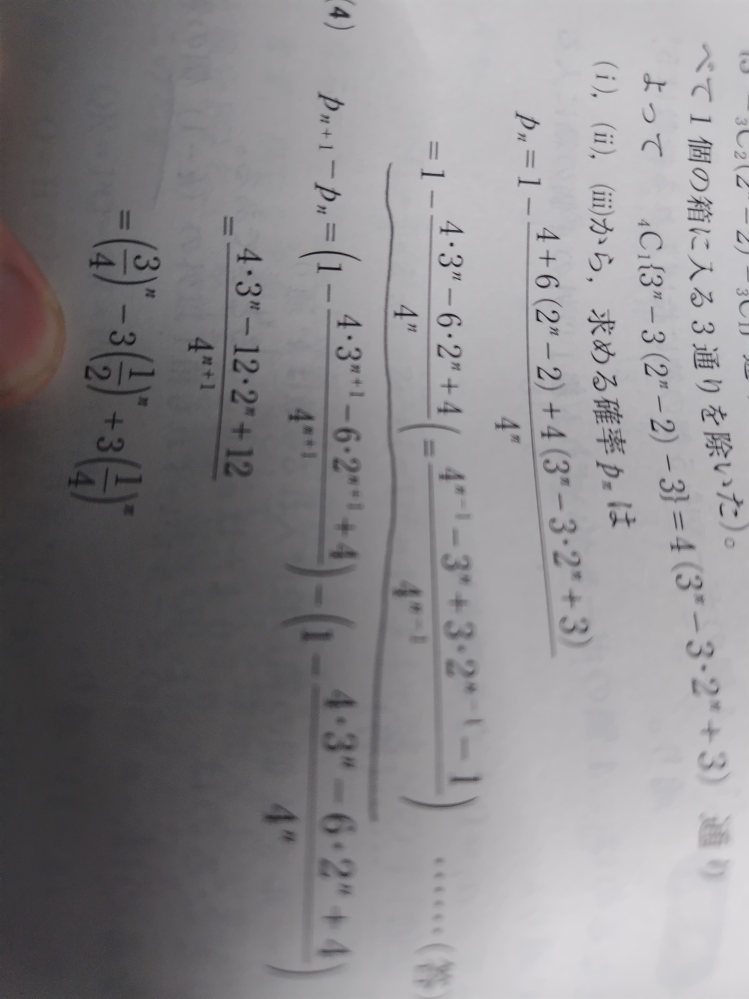 べて1個の箱に入る3通りを除いた)。
よって ₄C₁{3ⁿ−3(2ⁿ−2)−3}=4(3ⁿ−3·2ⁿ+3) 通り
(i), (ii), (iii)から, 求める確率 pₙ は
pₙ=1−(4+6(2ⁿ−2)+4(3ⁿ−3·2ⁿ+3))/4ⁿ
=1−(4·3ⁿ−6·2ⁿ+4)/4ⁿ (=(4ⁿ⁻¹−3ⁿ+3·2ⁿ⁻¹−1)/4ⁿ⁻¹) ……(答)
(4) pₙ₊₁−pₙ=(1−(4·3ⁿ⁺¹−6·2ⁿ⁺¹+4)/4ⁿ⁺¹)−(1−(4·3ⁿ−6·2ⁿ+4)/4ⁿ)
=(4·3ⁿ−12·2ⁿ+12)/4ⁿ⁺¹
=(3/4)ⁿ−3(1/2)ⁿ+3(1/4)ⁿ